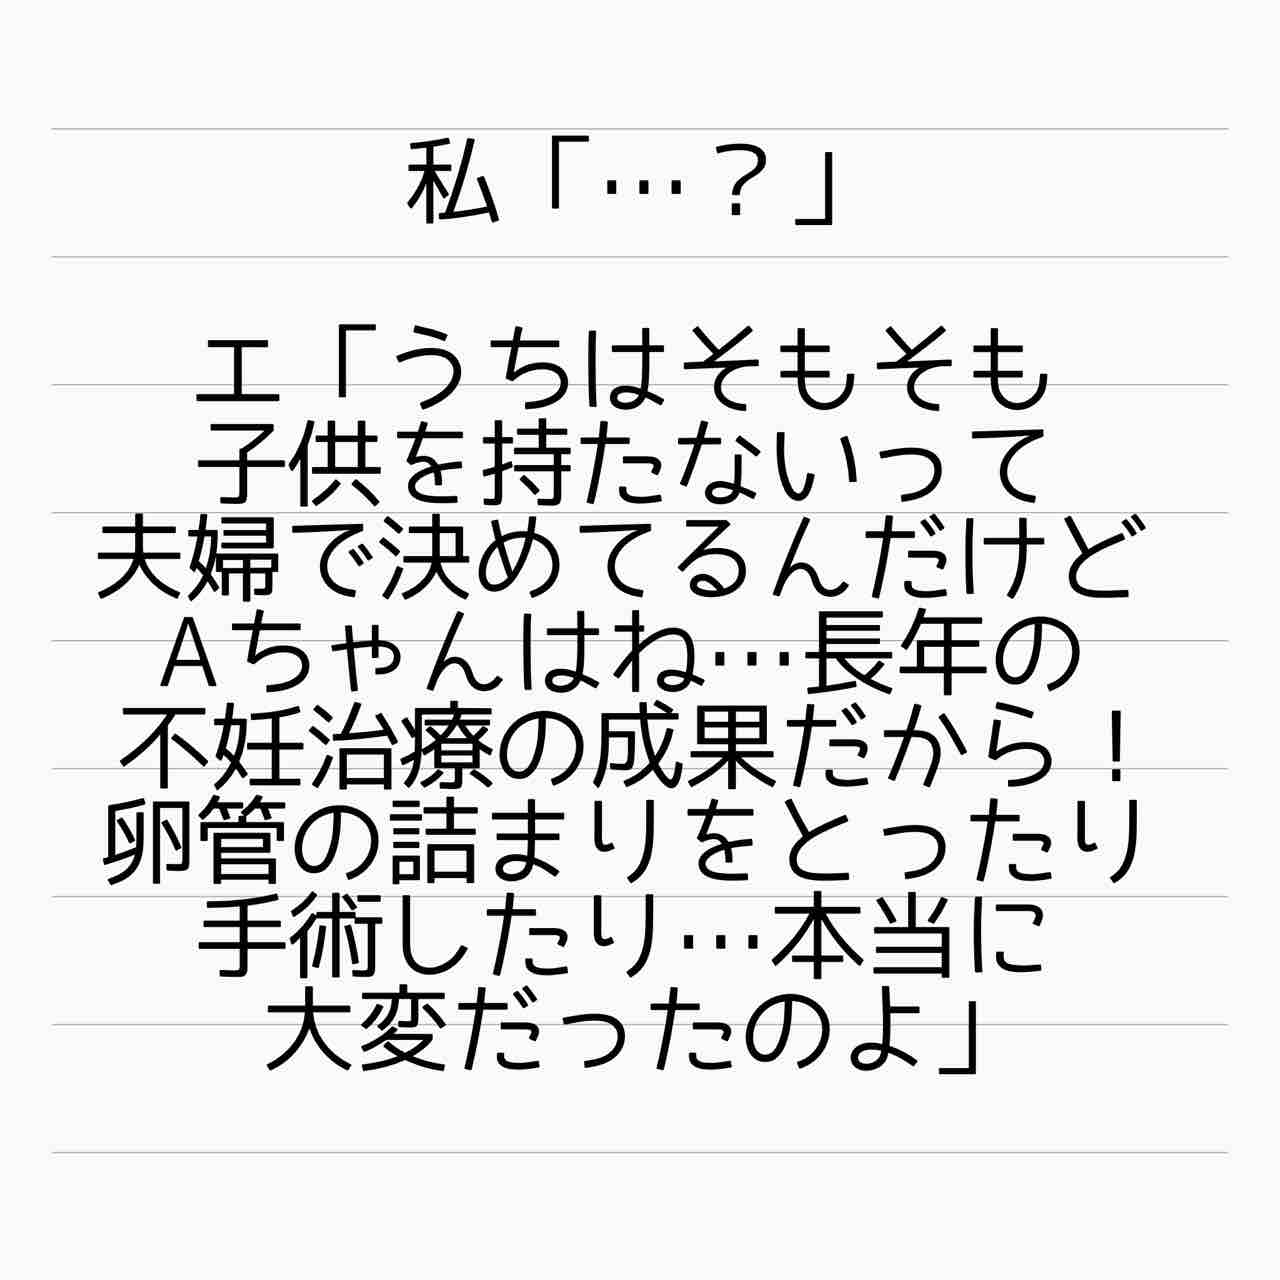 私「…？」
エ「うちはそもそも
子供を持たないって
夫婦で決めてるんだけど
Aちゃんはね…長年の
不妊治療の成果だから！
卵管の詰まりをとったり
手術したり…本当に
大変だったのよ」